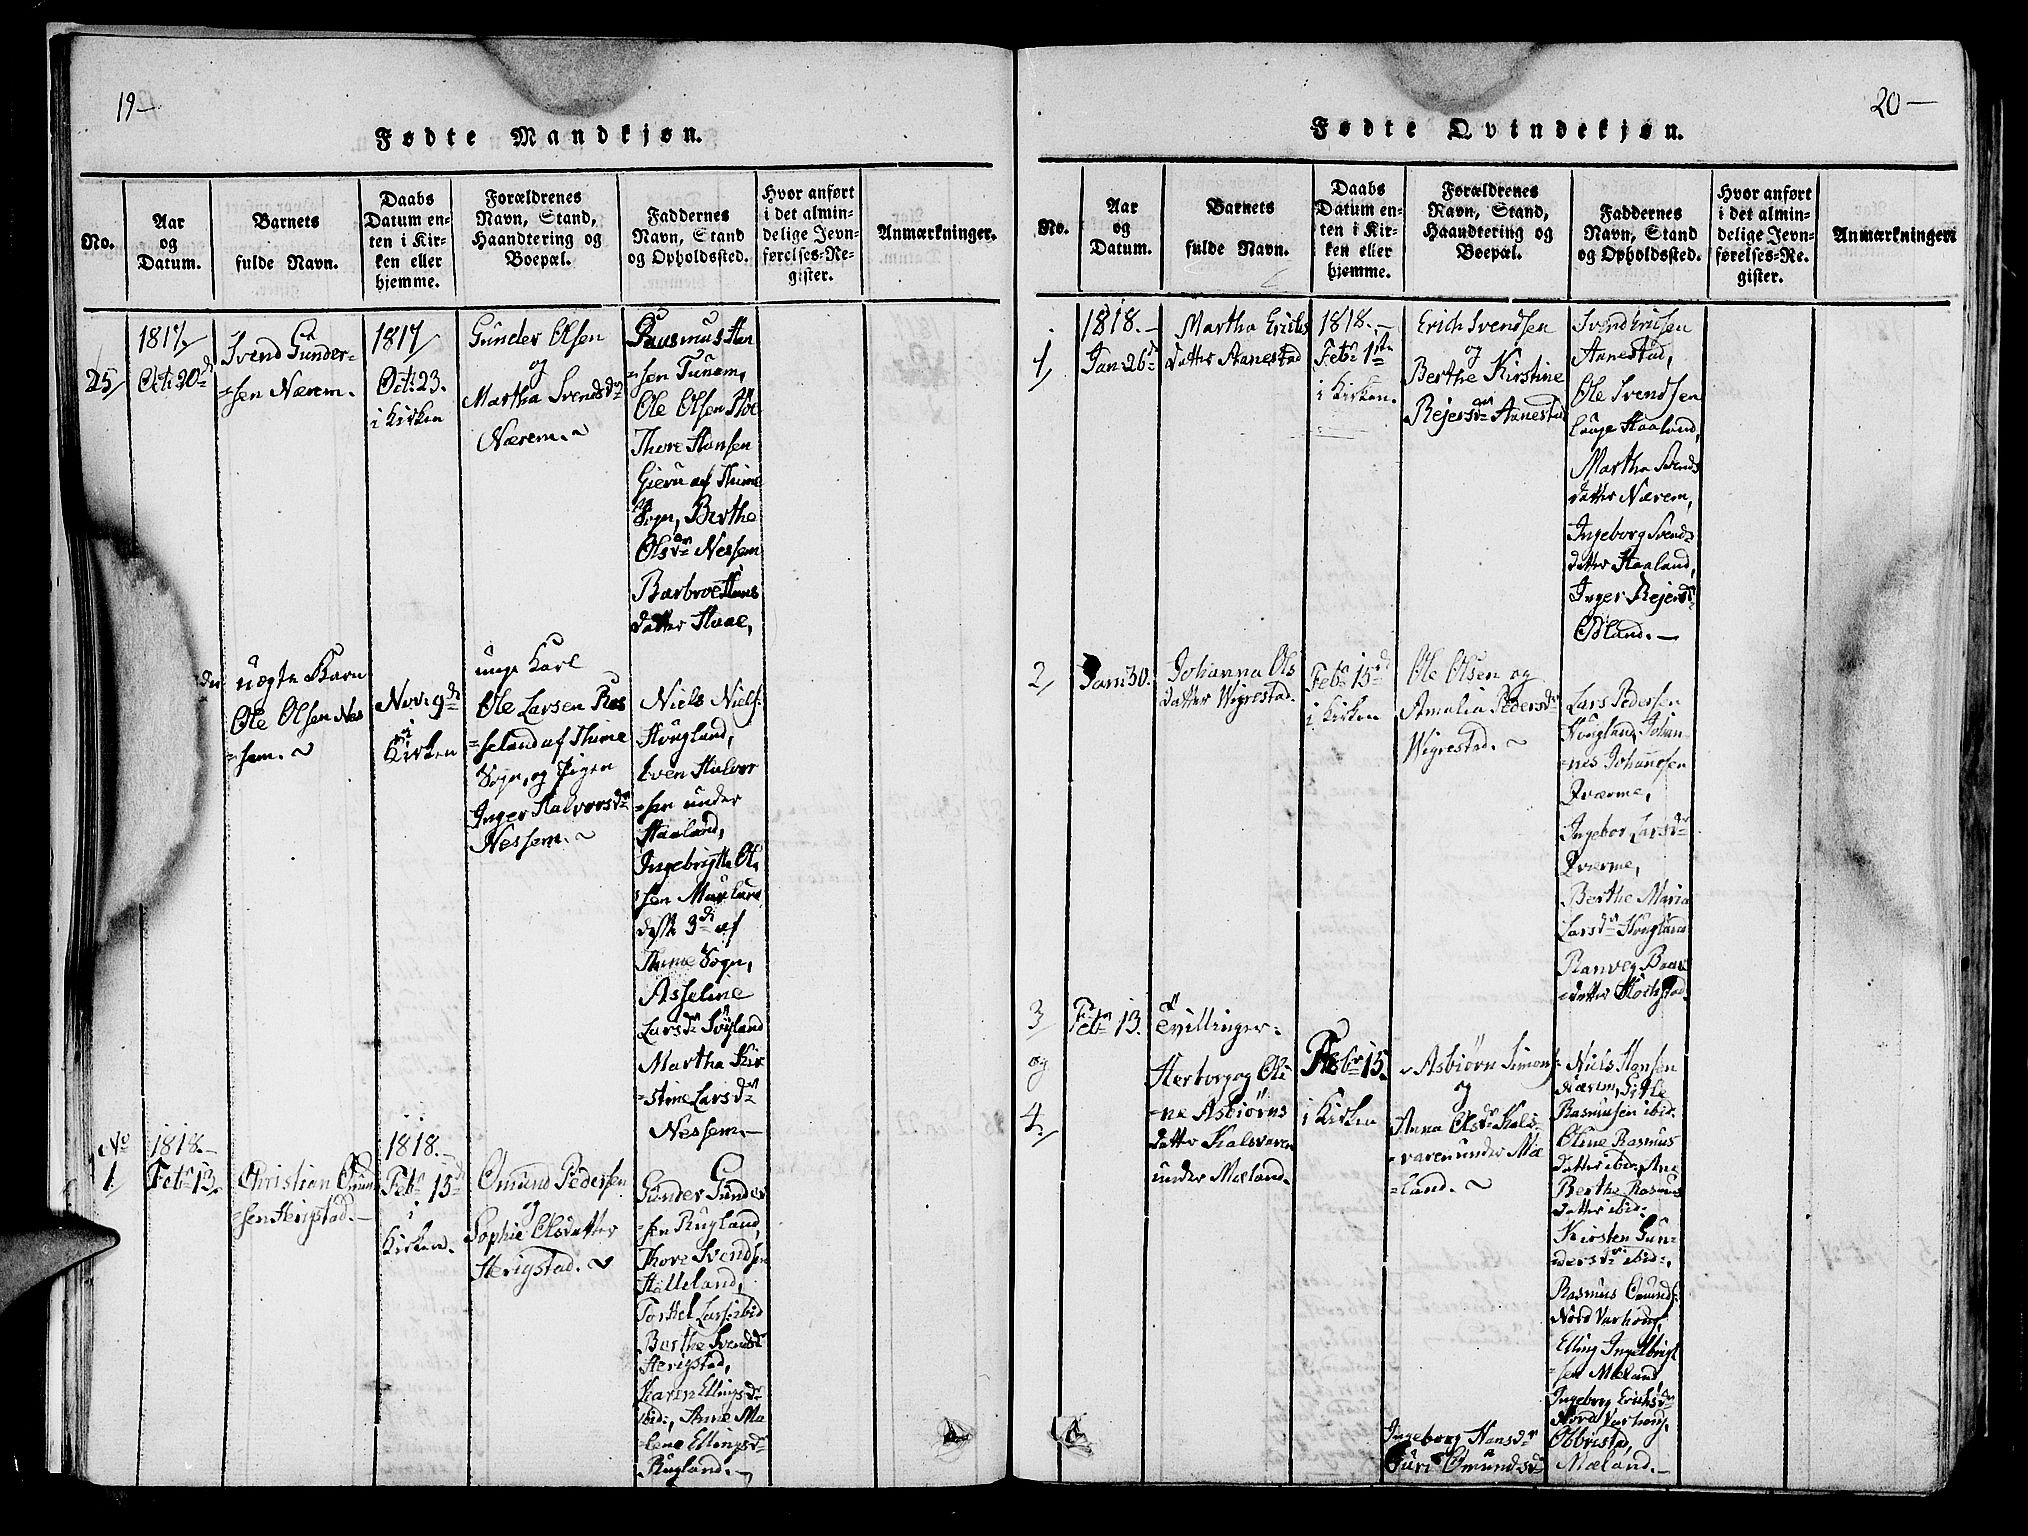 19-
Fødte Mandkjøn.
No.
Aar
og
Datum.
Barnets
fulde Navn.
Daabs
Datum en-
ten i Kir-
ken eller
hjemme.
Forældrenes
Navn, Stand,
Haandtering og
Boepæl.
Faddernes
Navn, Stand
og Opholdssted.
Hvor anført
i det almin-
delige Jevn-
førelses-Re-
gister.
Anmærkninger.
25/
1817
Oct: 20
Svend Gunder-
=sen Nærem.
1817
Oct: 23.
i Kirken
Gunder Olsen
og
Martha Svends dr
Nærem. ~
Rasmus Han
=sen Tunem,
Ole Olsen Hoe
Thore Hansen
Gieru af Thime
Sogn, Berthe
Ols dr Nessem
Barbroe Hans
datter Hoae,
uægte Barn
Ole Olsen Nes
=sem. ~
Nov: 9de
i
Kirken
unge Karl
Ole Larsen Ros
=seland af Thime
Sogn, og Pigen
Inger Halvors dr
Nessem. ~
Niels Niels:
Hougland,
Even Halvor
=sen under
Haaland,
Ingebrigtt Ol
=sen Mauland
disse 3de af
Thime Sogn,
Asseline
Lars dr
Martha Kir
=stine Lars dr
Nessem.-
No
1.
1818.-
Feb: 13.
Christian Omund
=sen Herigstad.-
1818.-
Feb: 15de
i
Kirken.
Omund Pedersen
og
Sophie Olsdatter
Herigstad. ~
Gunder Gunder
=sen Rugland,
Thore Svendsen
Hålleland,
Torkel Lars: ibid
Berthe Svends dr
Herigstad,
Karen Ellings dr
ibid:, Anne Ma
=lene Ellings dr
Rugland.-
20-
Fødte Qvindekjøn.
No.
Aar
og
Datum.
Barnets
fulde Navn.
Daabs
Datum en-
ten i Kir-
ken eller
hjemme.
Forældrenes
Navn, Stand,
Haandtering og
Boepæl.
Faddernes
Navn, Stand
og Opholdssted.
Hvor anført
i det almin-
delige Jevn-
førelses-Re-
gister.
Anmærkninger
1/
1818.-
Jan: 26de
Martha Erichs
datter Aanestad
1818.-
Feb: 1ste
i Kirken.
Erich Svendsen
og
Berthe Kirstine
Rejers dr Aanestad
Svend Erichsen
Aanestad,
Ole Svendsen
Lauge Haaland,
Martha Svends
datter Nærem,
Ingeborg Svends
datter Haaland,
Inger Rejers dr
Edland.-
2/
Jan: 30.
Johanna Ols
datter Wigrestad.
Feb: 15de
i Kirken
Ole Olsen og
Amalia Peders dr
Wigrestad. ~
Lars Pedersen
Hougland, Johan
=nes Johansen
Qværme,
Ingebor Lars dr
Qværme,
Berthe Maria
Lars dr Hougland
Ranveg Baar
datter
3/
og
4./
Feb: 13.
Tvillinger.
Herborg og Oli
=ne Asbiørns
datter Kalsvaren
under Mæland.
Feb: 15.
i Kirken
Asbiørn Simons:
og
Anna Ols dr Kals-
varen under Mæ
=land. ~
Niels Hansen
Nærem, Sitle
Rasmusen ibid.
Oline Rasmus
datter ibid:, Ane
Berthe Rasmus
datter ibid:
Kirsten Gun-
ders dr ibid:,
Rasmus Omunds:
Nord Varhoug,
Elling Ingelbrigt
=sen Mæland,
Ingeborg Erichs dr
Nord Varhoug,
Ingeborg Hans dr Obbrestad,
Guri Omunds dr Mæland.-